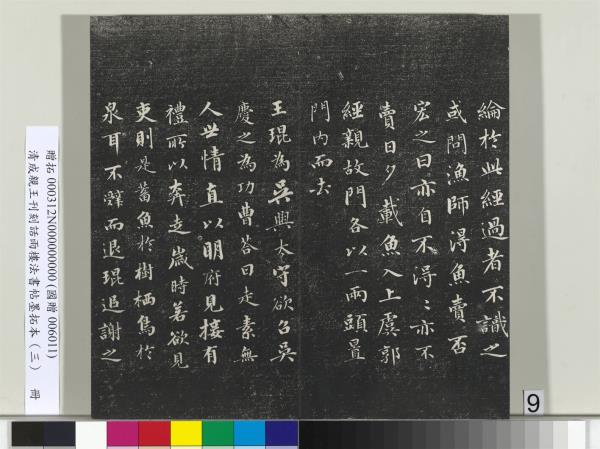 綸於此經過者不識之
或問漁師得魚賣否
宏之曰亦自不得〻亦不
賣日夕載魚入上虞郭
經親故門各以一兩頭置
門內而去
王琨為吳興太守欲召吳
慶之為功曹荅曰走素無
人世情直以明府見接有
禮所以奔走歲時若欲見
吏則是蓄魚於樹栖鳥於
泉耳不辭而退琨追謝之
贈拓 000312N000000000 (國贈 006011)
清成親王刊刻詒晉樓法書帖墨拓本（三） 冊
9